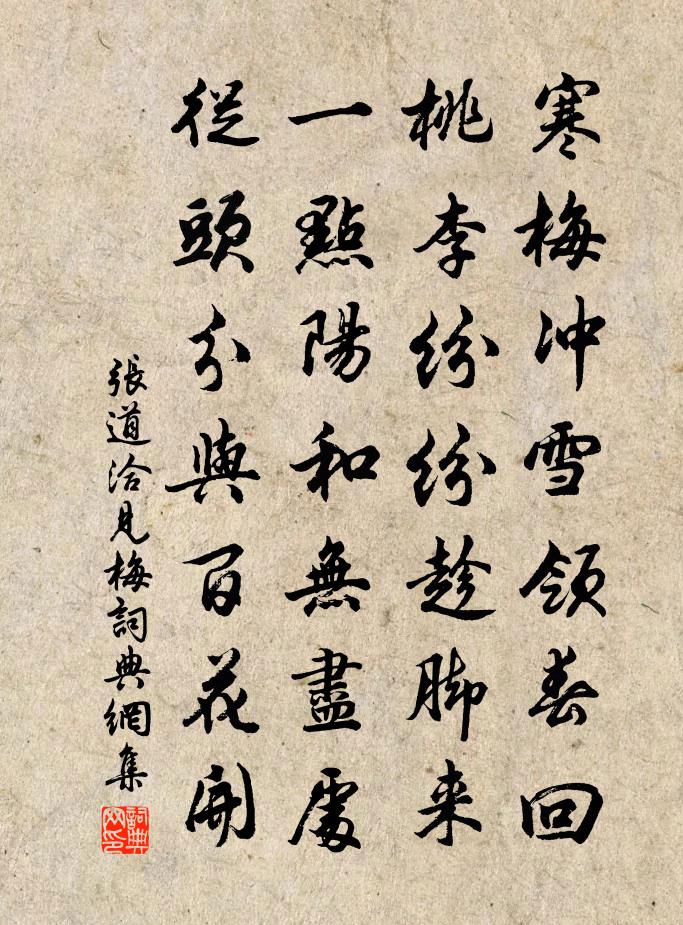 寒梅冲雪領春回
桃李紛紛趁脚来
一點陽和無盡處
從頭分與百花開
張道洽見梅詞典網集
詞典网印